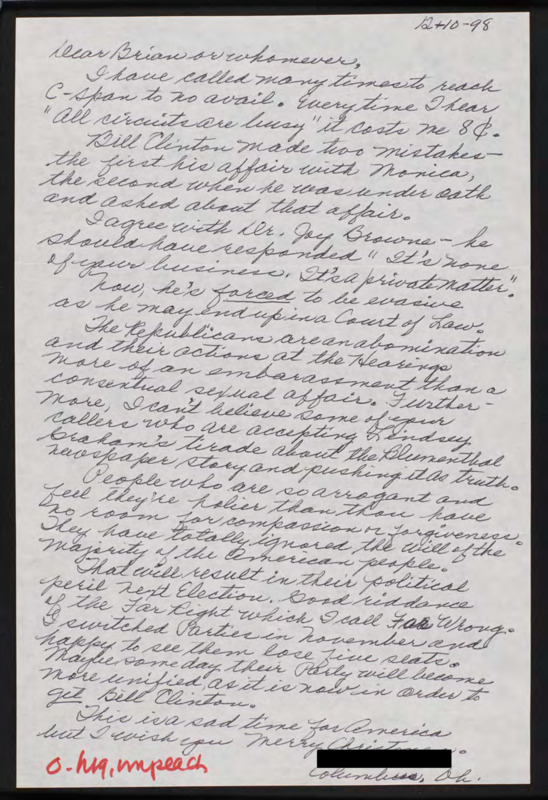 12-10-98
Dear Brian or whomever,
I have called many times to reach
C-Span to no avail. Everytime I hear
"All circuits are busy" it costs me 8¢.
Bill Clinton made two mistakes -
the first his affair with Monica,
the second when he was under oath
and asked about that affair.
I agree with Dr. Joy Browne - he
should have responded "It's none
of your business. It's a private matter".
Now, he's forced to be evasive
as he may end up in a Court of Law.
The Republicans are an abomination
and their actions at the Hearings
more of an embarassment than a
consentual sexual affair. Further-
more, I can't believe some of your
callers who are accepting Lindsey
Graham's tirade about the Blumenthal
newspaper story and pushing it as truth.
People who are so arrogant and
feel they're holier than thou have
no room for compassion or forgiveness.
They have totally ignored the will of the
majority of the American people.
That will result in their political
peril next Election. Good riddance
of the Far Right which I call Far Wrong.
I switched Parties in November and
happy to see them lose five seats.
Maybe someday their Party will become
more unified as it is now in order to
get Bill Clinton.
This is a sad time for America
but I wish you Merry Christmas.
Columbus, Oh.
O-hrg, impeach